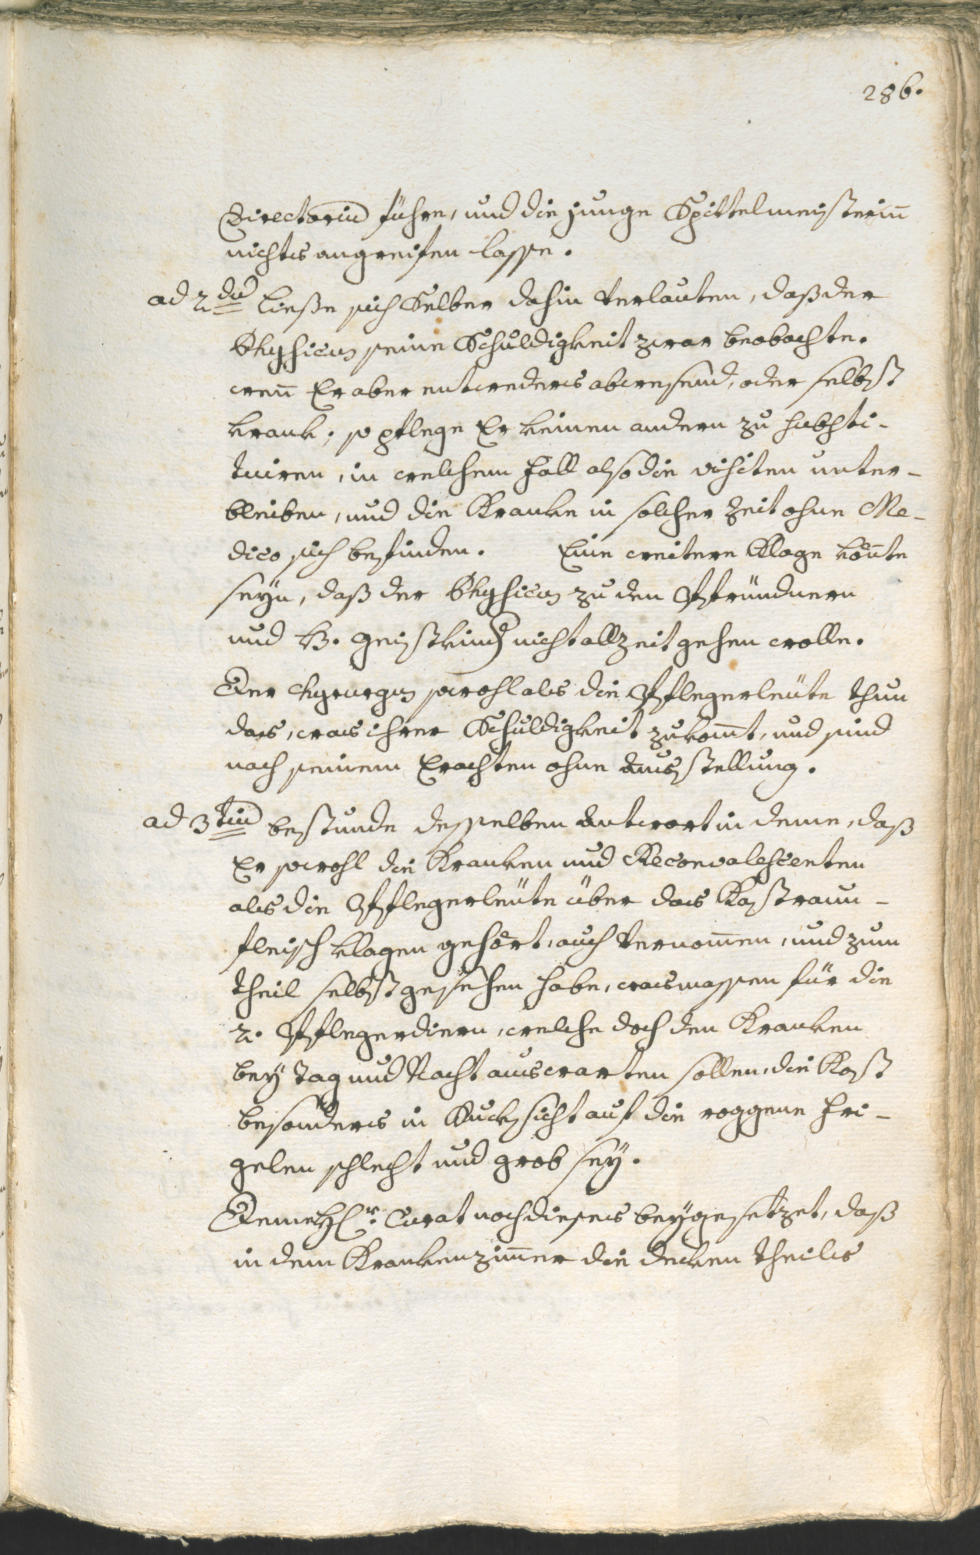 286.
Directorium führe, und die junge Spittelmeisterin̄
nichts angreifen lasse.
ad 2dum ließe sich Selber dahin verlauten, daß der
Physicus seine Schuldigkeit zwar beobachte.
wen̄ Er aber entweders abwesend, oder selbst
krank, so pflege Er keinen andern zu substi-
tuiren, in welchem Fall also die visiten unter-
bleiben, und die Kranke in solcher Zeit ohne Me-
dico sich befinden. Eine weitere Klage kön̄te
seyn, daß der Physicus zu den Pfründnern
und nicht allzeit gehen wolle.
Der Chyrurgus sowohl als die Pflegerleüte thun
das, was ihrer Schuldigkeit zukom̄t, und sind
nach seinem Erachten ohne Ausstellung.
ad 3tium bestunde desselben Antwort in deme, daß
Er sowohl die Kranken und Reconvalescenten
als die Pflegerleüte über das Kastraun-
fleisch klagen gehört, auch vernom̄en, und zum
theil selbst gesehen habe, wasmassen für die
2. Pflegerdiern, welche doch den Kranken
bey Tag und Nacht auswarten sollen, die Kost
besonders in Rucksicht auf die roggene Fri-
gelen schlecht und grob sey.
Deme Hr. Curat noch dieses beygesetzet, daß
in dem Krankenzim̄er die decken theils